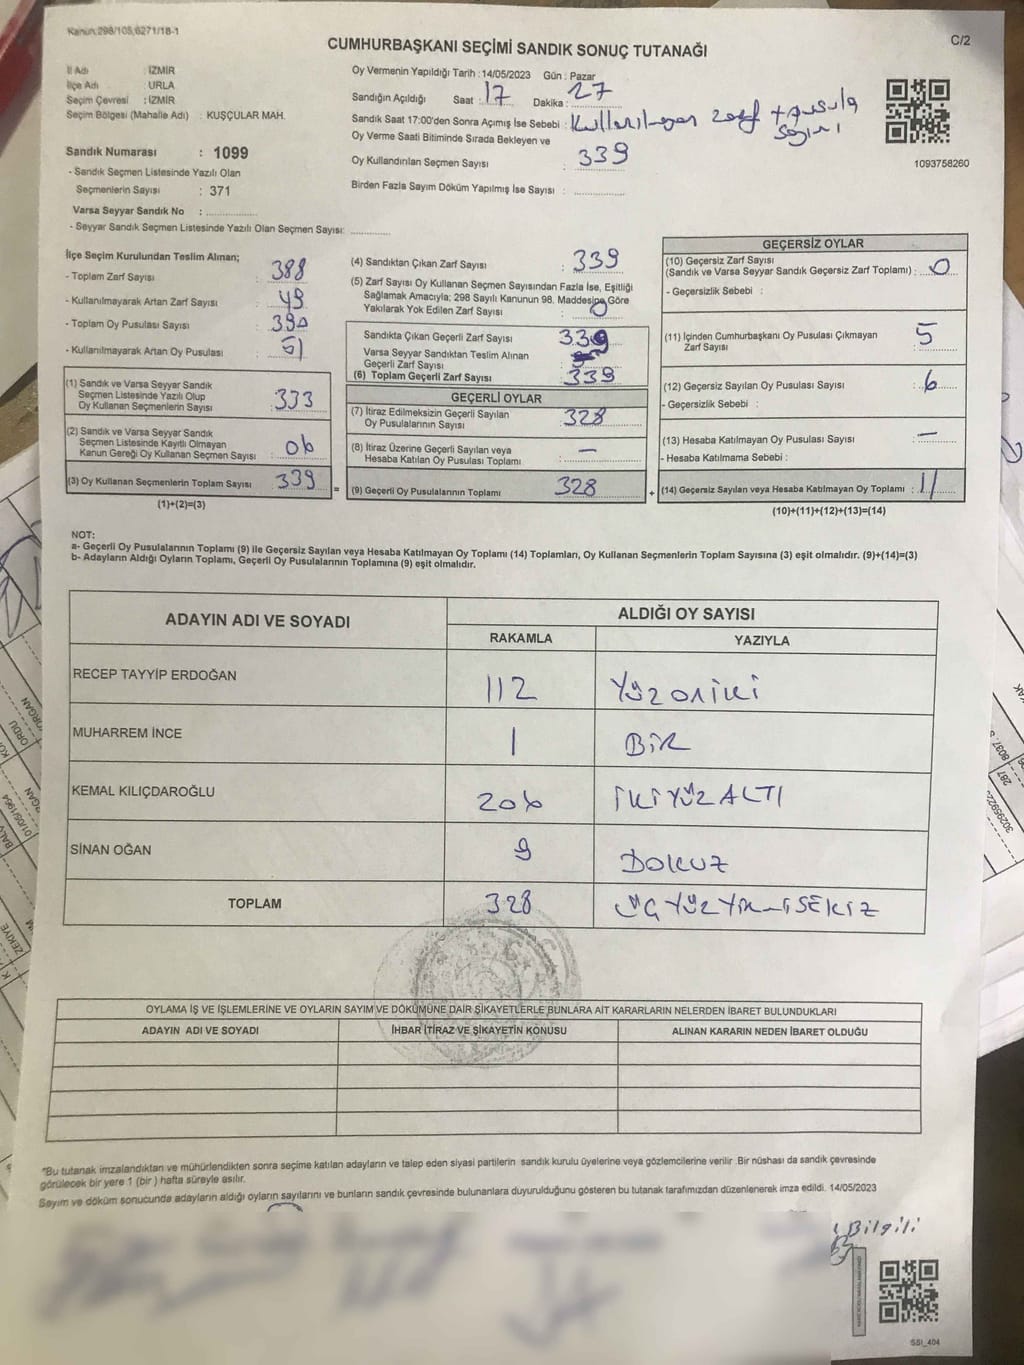 Kanun:298/105,6271/18-1
C/2
CUMHURBAŞKANI SEÇİMİ SANDIK SONUÇ TUTANAĞI
İl Adı : İZMİR
İlçe Adı : URLA
Seçim Çevresi : İZMİR
Seçim Bölgesi (Mahalle Adı) : KUŞÇULAR MAH.
Sandık Numarası : 1099
- Sandık Seçmen Listesinde Yazılı Olan
Seçmenlerin Sayısı : 371
Varsa Seyyar Sandık No :
- Seyyar Sandık Seçmen Listesinde Yazılı Olan Seçmen Sayısı:
Oy Vermenin Yapıldığı Tarih : 14/05/2023 Gün : Pazar
Sandığın Açıldığı Saat : 17 Dakika : 27
Sandık Saat 17:00'den Sonra Açımış İse Sebebi : Kullanılmayan zarf + pusula sayımı
Oy Verme Saati Bitiminde Sırada Bekleyen ve
Oy Kullandırılan Seçmen Sayısı : 339
Birden Fazla Sayım Döküm Yapılmış İse Sayısı :
1093758260
İlçe Seçim Kurulundan Teslim Alınan;
- Toplam Zarf Sayısı : 388
- Kullanılmayarak Artan Zarf Sayısı : 49
- Toplam Oy Pusulası Sayısı : 390
- Kullanılmayarak Artan Oy Pusulası : 51
(1) Sandık ve Varsa Seyyar Sandık
Seçmen Listesinde Yazılı Olup
Oy Kullanan Seçmenlerin Sayısı : 333
(2) Sandık ve Varsa Seyyar Sandık
Seçmen Listesinde Kayıtlı Olmayan
Kanun Gereği Oy Kullanan Seçmen Sayısı : 06
(3) Oy Kullanan Seçmenlerin Toplam Sayısı : 339
(1)+(2)=(3)
=
(4) Sandıktan Çıkan Zarf Sayısı : 339
(5) Zarf Sayısı Oy Kullanan Seçmen Sayısından Fazla İse, Eşitliği
Sağlamak Amacıyla; 298 Sayılı Kanunun 98. Maddesine Göre
Yakılarak Yok Edilen Zarf Sayısı : 0
Sandıkta Çıkan Geçerli Zarf Sayısı : 339
Varsa Seyyar Sandıktan Teslim Alınan
Geçerli Zarf Sayısı :
(6) Toplam Geçerli Zarf Sayısı : 339
GEÇERLİ OYLAR
(7) İtiraz Edilmeksizin Geçerli Sayılan
Oy Pusulalarının Sayısı : 328
(8) İtiraz Üzerine Geçerli Sayılan veya
Hesaba Katılan Oy Pusulası Toplamı : –
(9) Geçerli Oy Pusulalarının Toplamı 328
+
GEÇERSİZ OYLAR
(10) Geçersiz Zarf Sayısı
(Sandık ve Varsa Seyyar Sandık Geçersiz Zarf Toplamı) : 0
- Geçersizlik Sebebi :
(11) İçinden Cumhurbaşkanı Oy Pusulası Çıkmayan
Zarf Sayısı : 5
(12) Geçersiz Sayılan Oy Pusulası Sayısı : 6
- Geçersizlik Sebebi :
(13) Hesaba Katılmayan Oy Pusulası Sayısı : –
- Hesaba Katılmama Sebebi :
(14) Geçersiz Sayılan veya Hesaba Katılmayan Oy Toplamı : 11
(10)+(11)+(12)+(13)=(14)
NOT:
a- Geçerli Oy Pusulalarının Toplamı (9) ile Geçersiz Sayılan veya Hesaba Katılmayan Oy Toplamı (14) Toplamları, Oy Kullanan Seçmenlerin Toplam Sayısına (3) eşit olmalıdır. (9)+(14)=(3)
b- Adayların Aldığı Oyların Toplamı, Geçerli Oy Pusulalarının Toplamına (9) eşit olmalıdır.
ADAYIN ADI VE SOYADI ALDIĞI OY SAYISI
RAKAMLA YAZIYLA
RECEP TAYYİP ERDOĞAN 112 Yüz oniki
MUHARREM İNCE 1 BİR
KEMAL KILIÇDAROĞLU 206 İKİ YÜZ ALTI
SİNAN OĞAN 9 DOKUZ
TOPLAM 328 ÜÇ YÜZ YİRMİ SEKİZ
OYLAMA İŞ VE İŞLEMLERİNE VE OYLARIN SAYIM VE DÖKÜMÜNE DAİR ŞİKAYETLERLE BUNLARA AİT KARARLARIN NELERDEN İBARET BULUNDUKLARI
ADAYIN ADI VE SOYADI İHBAR İTİRAZ VE ŞİKAYETİN KONUSU ALINAN KARARIN NEDEN İBARET OLDUĞU
*Bu tutanak imzalandıktan ve mühürlendikten sonra seçime katılan adayların ve talep eden siyasi partilerin sandık kurulu üyelerine veya gözlemcilerine verilir .Bir nüshası da sandık çevresinde
görülecek bir yere 1 (bir ) hafta süreyle asılır.
Sayım ve döküm sonucunda adayların aldığı oyların sayılarını ve bunların sandık çevresinde bulunanlara duyurulduğunu gösteren bu tutanak tarafımızdan düzenlenerek imza edildi. 14/05/2023
Bilgili
SSI_404
ORDU
01/05/1964
ZEKİYE
287